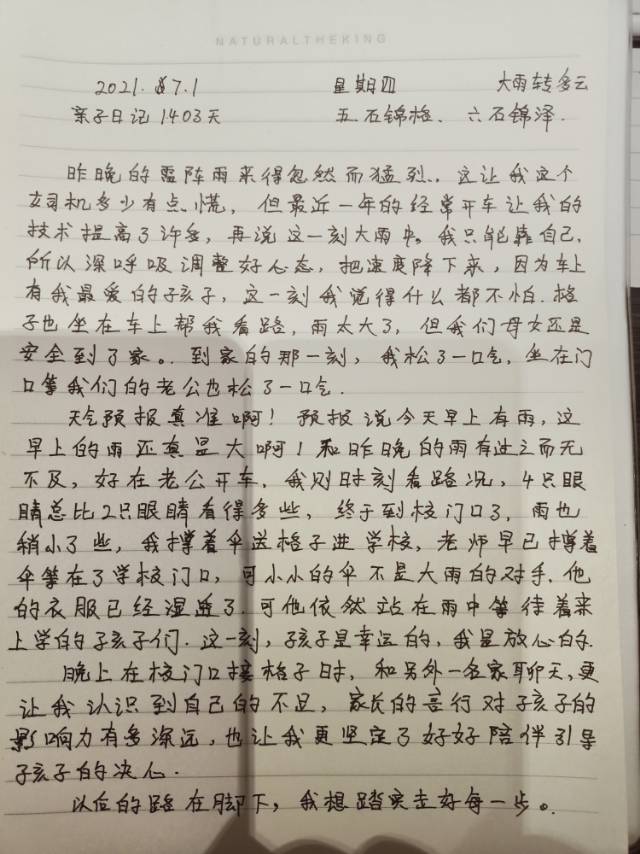 NATURALTHEKING
2021.7.1 星期四 大雨转多云
亲子日记1403天 五石锦格、六石锦泽.
昨晚的雷阵雨来得忽然而猛烈、这让我这个
女司机多少有点慌，但最近一年的经常开车让我的
技术提高了许多，再说这一刻大雨中。我只能靠自己，
所以深呼吸调整好心态，把速度降下来，因为车上
有我最爱的子孩子，这一刻我觉得什么都不怕.格
子也坐在车上帮我看路，雨太大了，但我们母女还是
安全到了家。.到家的那一刻，我松了一口气，坐在门
口等我们的老公也松了一口气.
天气预报真准啊！预报说今天早上有雨，这
早上的雨还真是大啊！和昨晚的雨有过之而无
不及，好在老公开车，我则时刻看路况，4只眼
睛总比2只眼睛看得多些，终于到校门口了，雨也
稍小了些，我撑着伞送格子进学校，老师早已撑着
伞等在了学校门口，可小小的伞不是大雨的对手.他
的衣服已经湿透了.可他依然站在雨中等待着来
上学的子孩子们.这一刻，子孩子是幸运的，我是放心的.
晚上在校门口接格子时，和另外一名家聊天，更
让我认识到自己的不足，家长的言行对子孩子的
影响力有多深远，也让我更坚定了好好陪伴引导
子孩子的决心.
以后的路在脚下，我想踏实走好每一步。.